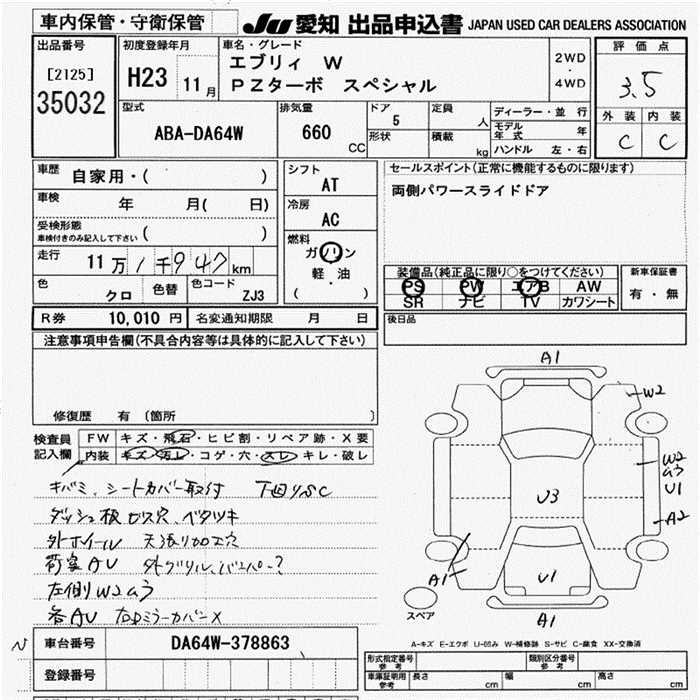 車内保管・守衛保管
JU 愛知 出品申込書 JAPAN USED CAR DEALERS ASSOCIATION
出品番号
[2125]
35032
初度登録年月
H23 11月
車名・グレード
エブリィ W
PZターボ スペシャル
2WD
・
4WD
評価点
3.5
外装 内装
C C
型式
ABA-DA64W
排気量
660
CC
ドア
5
形状
定員
人
積載
kg
ディーラー・並行
モデル
年式 年
ハンドル 左・右
車歴
自家用・( )
車検
年 月( 日)
受検形態
車検付きのみ記入して下さい ( )
走行
11万1千947km
色
クロ
色替
色コード
ZJ3
シフト
AT
冷房
AC
燃料
ガソリン
軽・油
( )
セールスポイント(正常に機能するものに限り)
両側パワースライドドア
装備品(純正品に限り○をつけてください)
PS PW エアB AW
SR ナビ TV カワシート
新車保証書
有・無
R券 10,010円 名変通知期限 月 日
後日品
注意事項申告欄(不具合内容等は具体的に記入して下さい)
修復歴 有〔箇所 〕
検査員
記入欄
FW キズ・飛石・ヒビ割・リペア跡・X要
内装 キズ・汚レ・コゲ・穴・スレ・キレ・破レ
キバミ、シートカバー取付 下回りSC
ダッシュ板ビス穴、ベタツキ
外ホイールW 天張り加工穴
荷室AU 外グリル、バンパー?
左側W2ムラ
各AU 右DミラーカバーX
A1
W2
W2
ムラ
U1
A2
U3
A1
U1
A1
スペア
A-キズ E-エクボ U-凹み W-補修跡 S-サビ C-腐食 XX-交換済
車台番号 DA64W-378863
登録番号
形式指定番号
参考
類別区分番号
参考
車庫証明用
参考
長さ cm 幅 cm 高さ cm